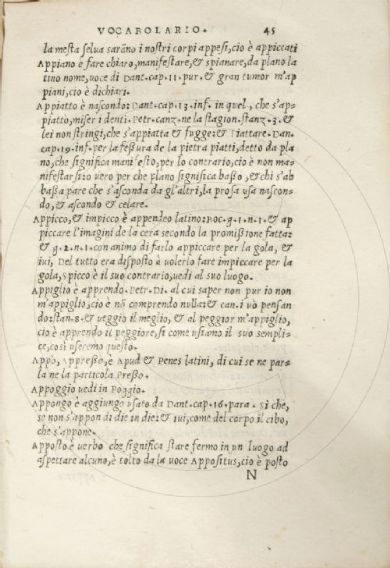 VOCABOLARIO. 45
la mesta selua saranno i nostri corpi appesi, cio è appiccati
Appiano è fare chiaro, manifestare, & spianare, da plano la
tino nome, uoce di Dant. cap. 11. pur. & gran tumor m'ap
piani, cio è dichiari.
Appiatto è nascondo: Dant. cap. 13. inf. in quel, che s'ap-
piatto, miser i denti. Petr. canz. ne la stagion. stanz. 3. &
lei non stringi, che s'appiatta & fugge: Piattare. Dan.
cap. 19. inf. per la feßura de la pietra piatti, detto da pla
no, che significa manifesto, per lo contrario, cio è non ma-
nifestarsi: o vero per che plano significa baßo, & chi s'ab
baßa pare che s'asconda da gl'altri, la prosa usa nascon-
do, & ascondo & celare.
Appicco, & impicco è appendeo latino: Boc. g. 1. n. 1. & ap
piccare l'imagini de la cera secondo la promißione fatta:
& g. 2. n. 1. con animo di farlo appiccare per la gola, &
iui, Del tutto era disposto à uolerlo fare impiccare per la
gola, spicco è il suo contrario, uedi al suo luogo.
Appiglio è apprendo. Petr. Di. al cui saper non pur io non
m'appiglio, cio è nõ comprendo nulla: & can. i uò pensan
do: stan. 8. & ueggio il meglio, & al peggior m'appiglio,
cio è apprendo il peggiore, si come usiamo il suo sempli-
ce, così useremo questo.
Appò, Appreßo, è Apud & Penes latini, di cui se ne par-
la ne la particola Preßo.
Appoggio uedi in Poggio.
Appongo è aggiungo usato da Dant. cap. 16. para. Si che,
se non s'appon di die in die: & iui, come del corpo il cibo,
che s'appone.
Apposto è uerbo che significa stare fermo in un luogo ad
aspettare alcuno, è tolto da la uoce Appositus, cio è posto
N